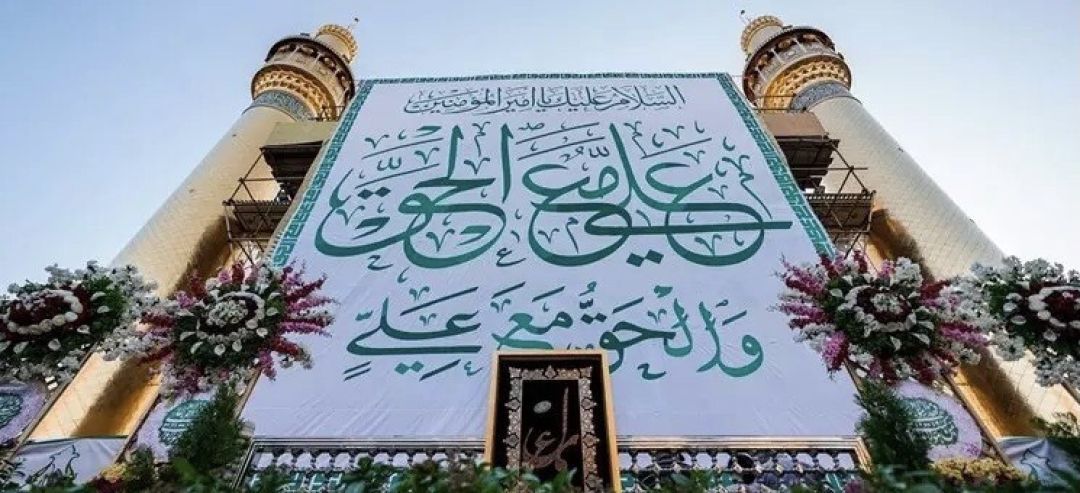 السَّلامُ عَلَيْكَ يَا أَمِيرَ المُؤْمِنِينَ
عَلِيٌّ مَعَ الحَقِّ
وَالْحَقُّ مَعَ عَلِيٍّ